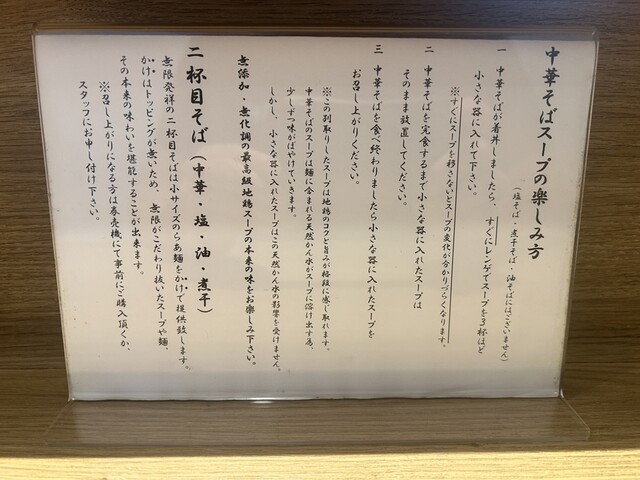 中華そばスープの楽しみ方
(塩そば・煮干そば・油そばにはございません)
一　中華そばが着丼しましたら、すぐにレンゲでスープを3杯ほど
小さな器に入れて下さい。
※すぐにスープを移さないとスープの変化が分かりづらくなります。
二　中華そばを完食するまで小さな器に入れたスープは
そのまま放置してください。
三　中華そばを食べ終わりましたら小さな器に入れたスープを
お召し上がりください。
※この別取りしたスープは地鶏のコクと旨みが格段に感じ取れます。
中華そばのスープは麺に含まれる天然かん水がスープに溶け出す為、
少しずつ味がぼやけていきます。
しかし、小さな器に入れたスープはこの天然かん水の影響を受けません。
無添加・無化調の最高級地鶏スープの本来の味をお楽しみ下さい。
二杯目そば(中華・塩・油・煮干)
無限発祥の二杯目そばは小サイズのらぁ麺をかけで提供致します。
かけはトッピングが無いため、無限がこだわり抜いたスープや麺、
その本来の味わいを堪能することが出来ます。
※召し上がりになる方は券売機にて事前にご購入頂くか、
スタッフにお申し付け下さい。